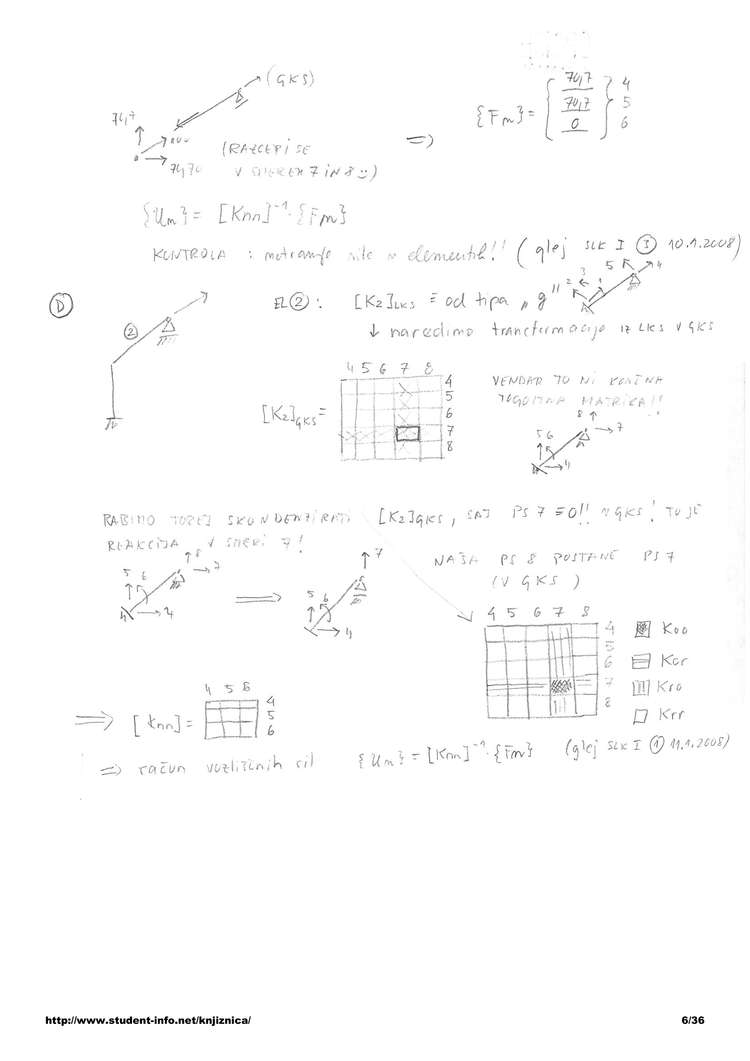 (GKS)
{Fm} = { 70,7 70,7 0 } 4 5 6
(RAZCEPI SE
V SMEREH 7 IN 8 :-))
=>
{Um} = [Knn]⁻¹·{Fm}
KONTROLA : notranje sile v elementih!! (glej SLK I ① 10.1.2008)
D
②
EL②: [K2]LKS = od tipa "g"
↓ naredimo transformacijo iz LKS v GKS
4 5 6 7 8
[K2]GKS =
4
5
6
7
8
VENDAR TO NI KONČNA
TOGOSTNA MATRIKA!!
RABIMO TOREJ SKONDENZIRATI [K2]GKS, SAJ PS 7 = 0!! v GKS! TU JE
REAKCIJA V SMERI 7!
NAŠA PS 8 POSTANE PS 7
(V GKS)
4 5 6 7 8
4
5
6
7
8
Koo
Kor
Kro
Krr
=> [Knn] =
4 5 6
4
5
6
=> račun vozliščnih sil {Um} = [Knn]⁻¹·{Fm} (glej SLK I ① 11.1.2008)
http://www.student-info.net/knjiznica/
6/36